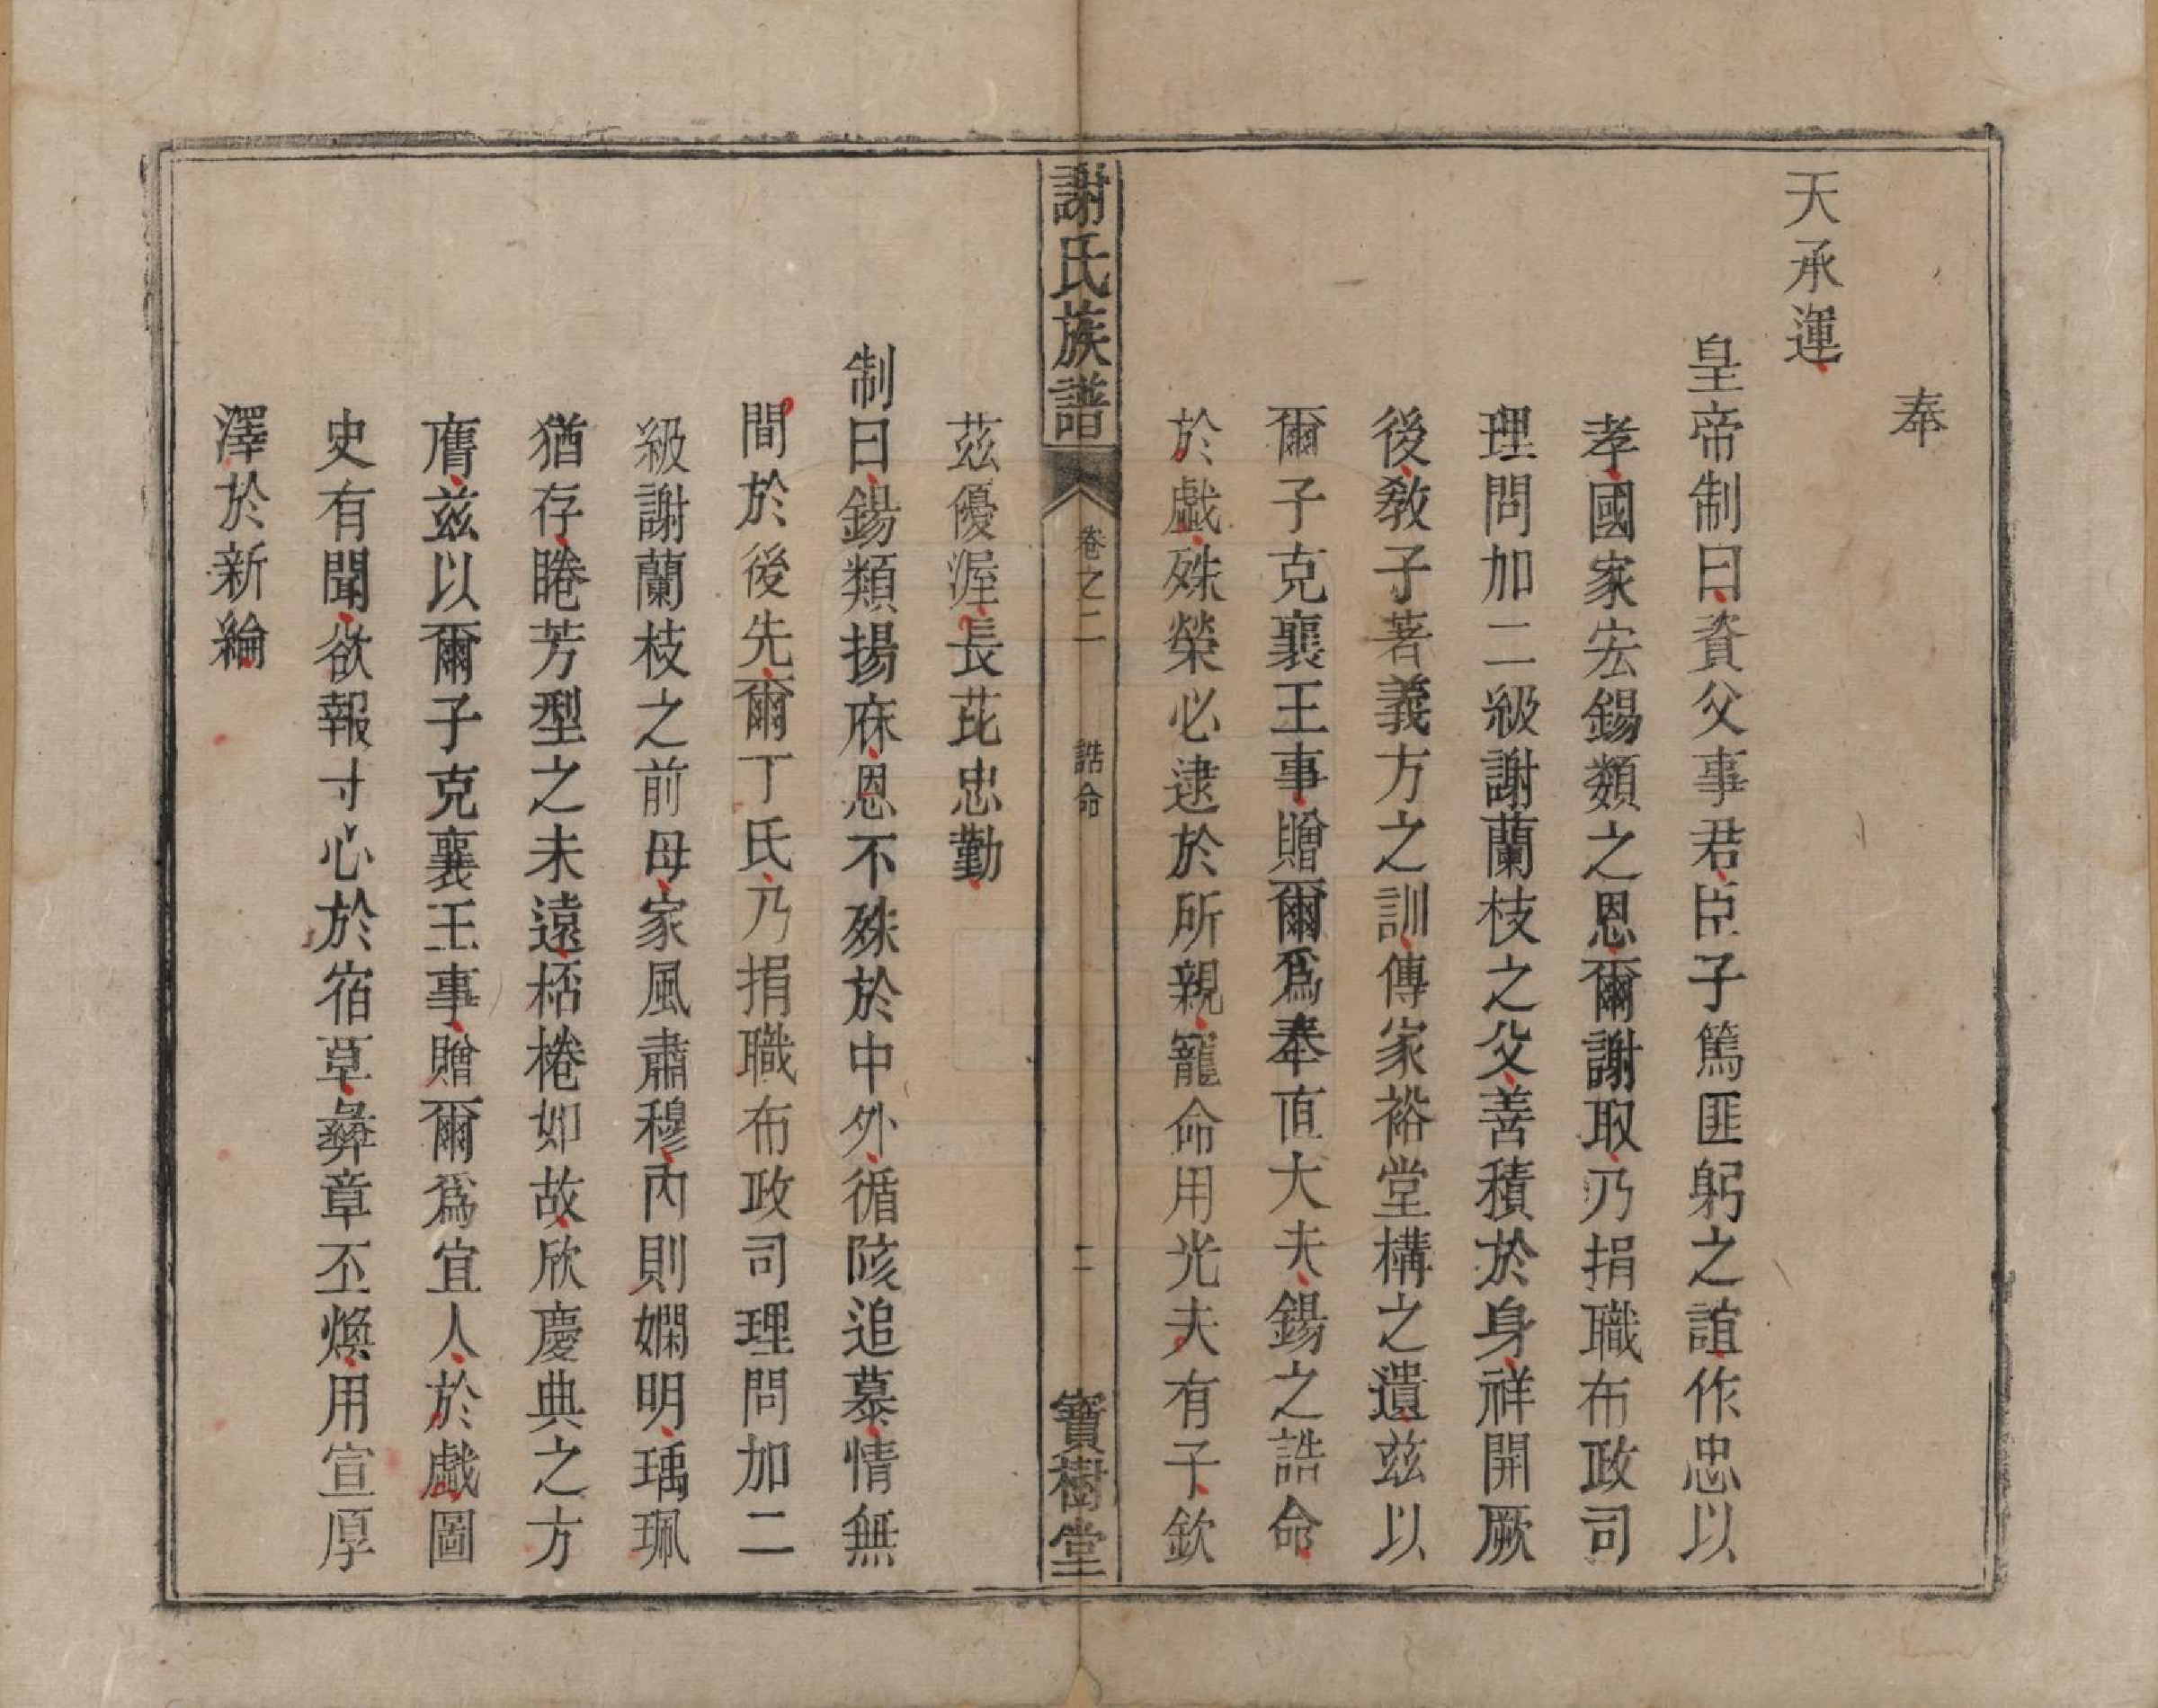 奉
天承運
皇帝制曰資父事君臣子篤匪躬之誼作忠以
孝國家宏錫類之恩爾謝取乃捐職布政司
理問加二級謝蘭枝之父善積於身祥開厥
後教子著義方之訓傳家裕堂構之遺茲以
爾子克襄王事贈爾爲奉直大夫錫之誥命
於戲殊榮必逮於所親寵命用光夫有子欽
謝氏族譜
卷之二
誥命
二
寶樹堂
茲優渥長茝忠勤
制曰錫類揚庥恩不殊於中外循陔追慕情無
間於後先爾丁氏乃捐職布政司理問加二
級謝蘭枝之前母家風肅穆內則嫻明瑀珮
猶存睠芳型之未遠桮棬如故欣慶典之方
膺茲以爾子克襄王事贈爾爲宜人於戲圖
史有聞欲報寸心於宿草彝章丕煥用宣厚
澤於新綸